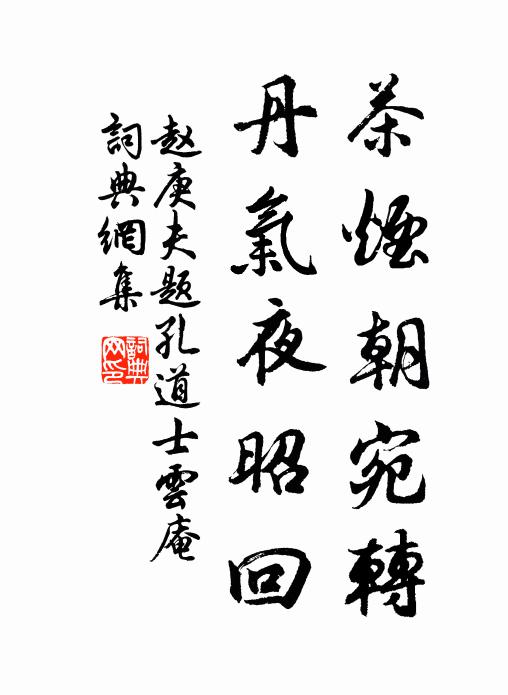 茶煙朝宛轉
丹氣夜昭回
赵庚夫题孔道士雲庵
詞典網集
詞典网印